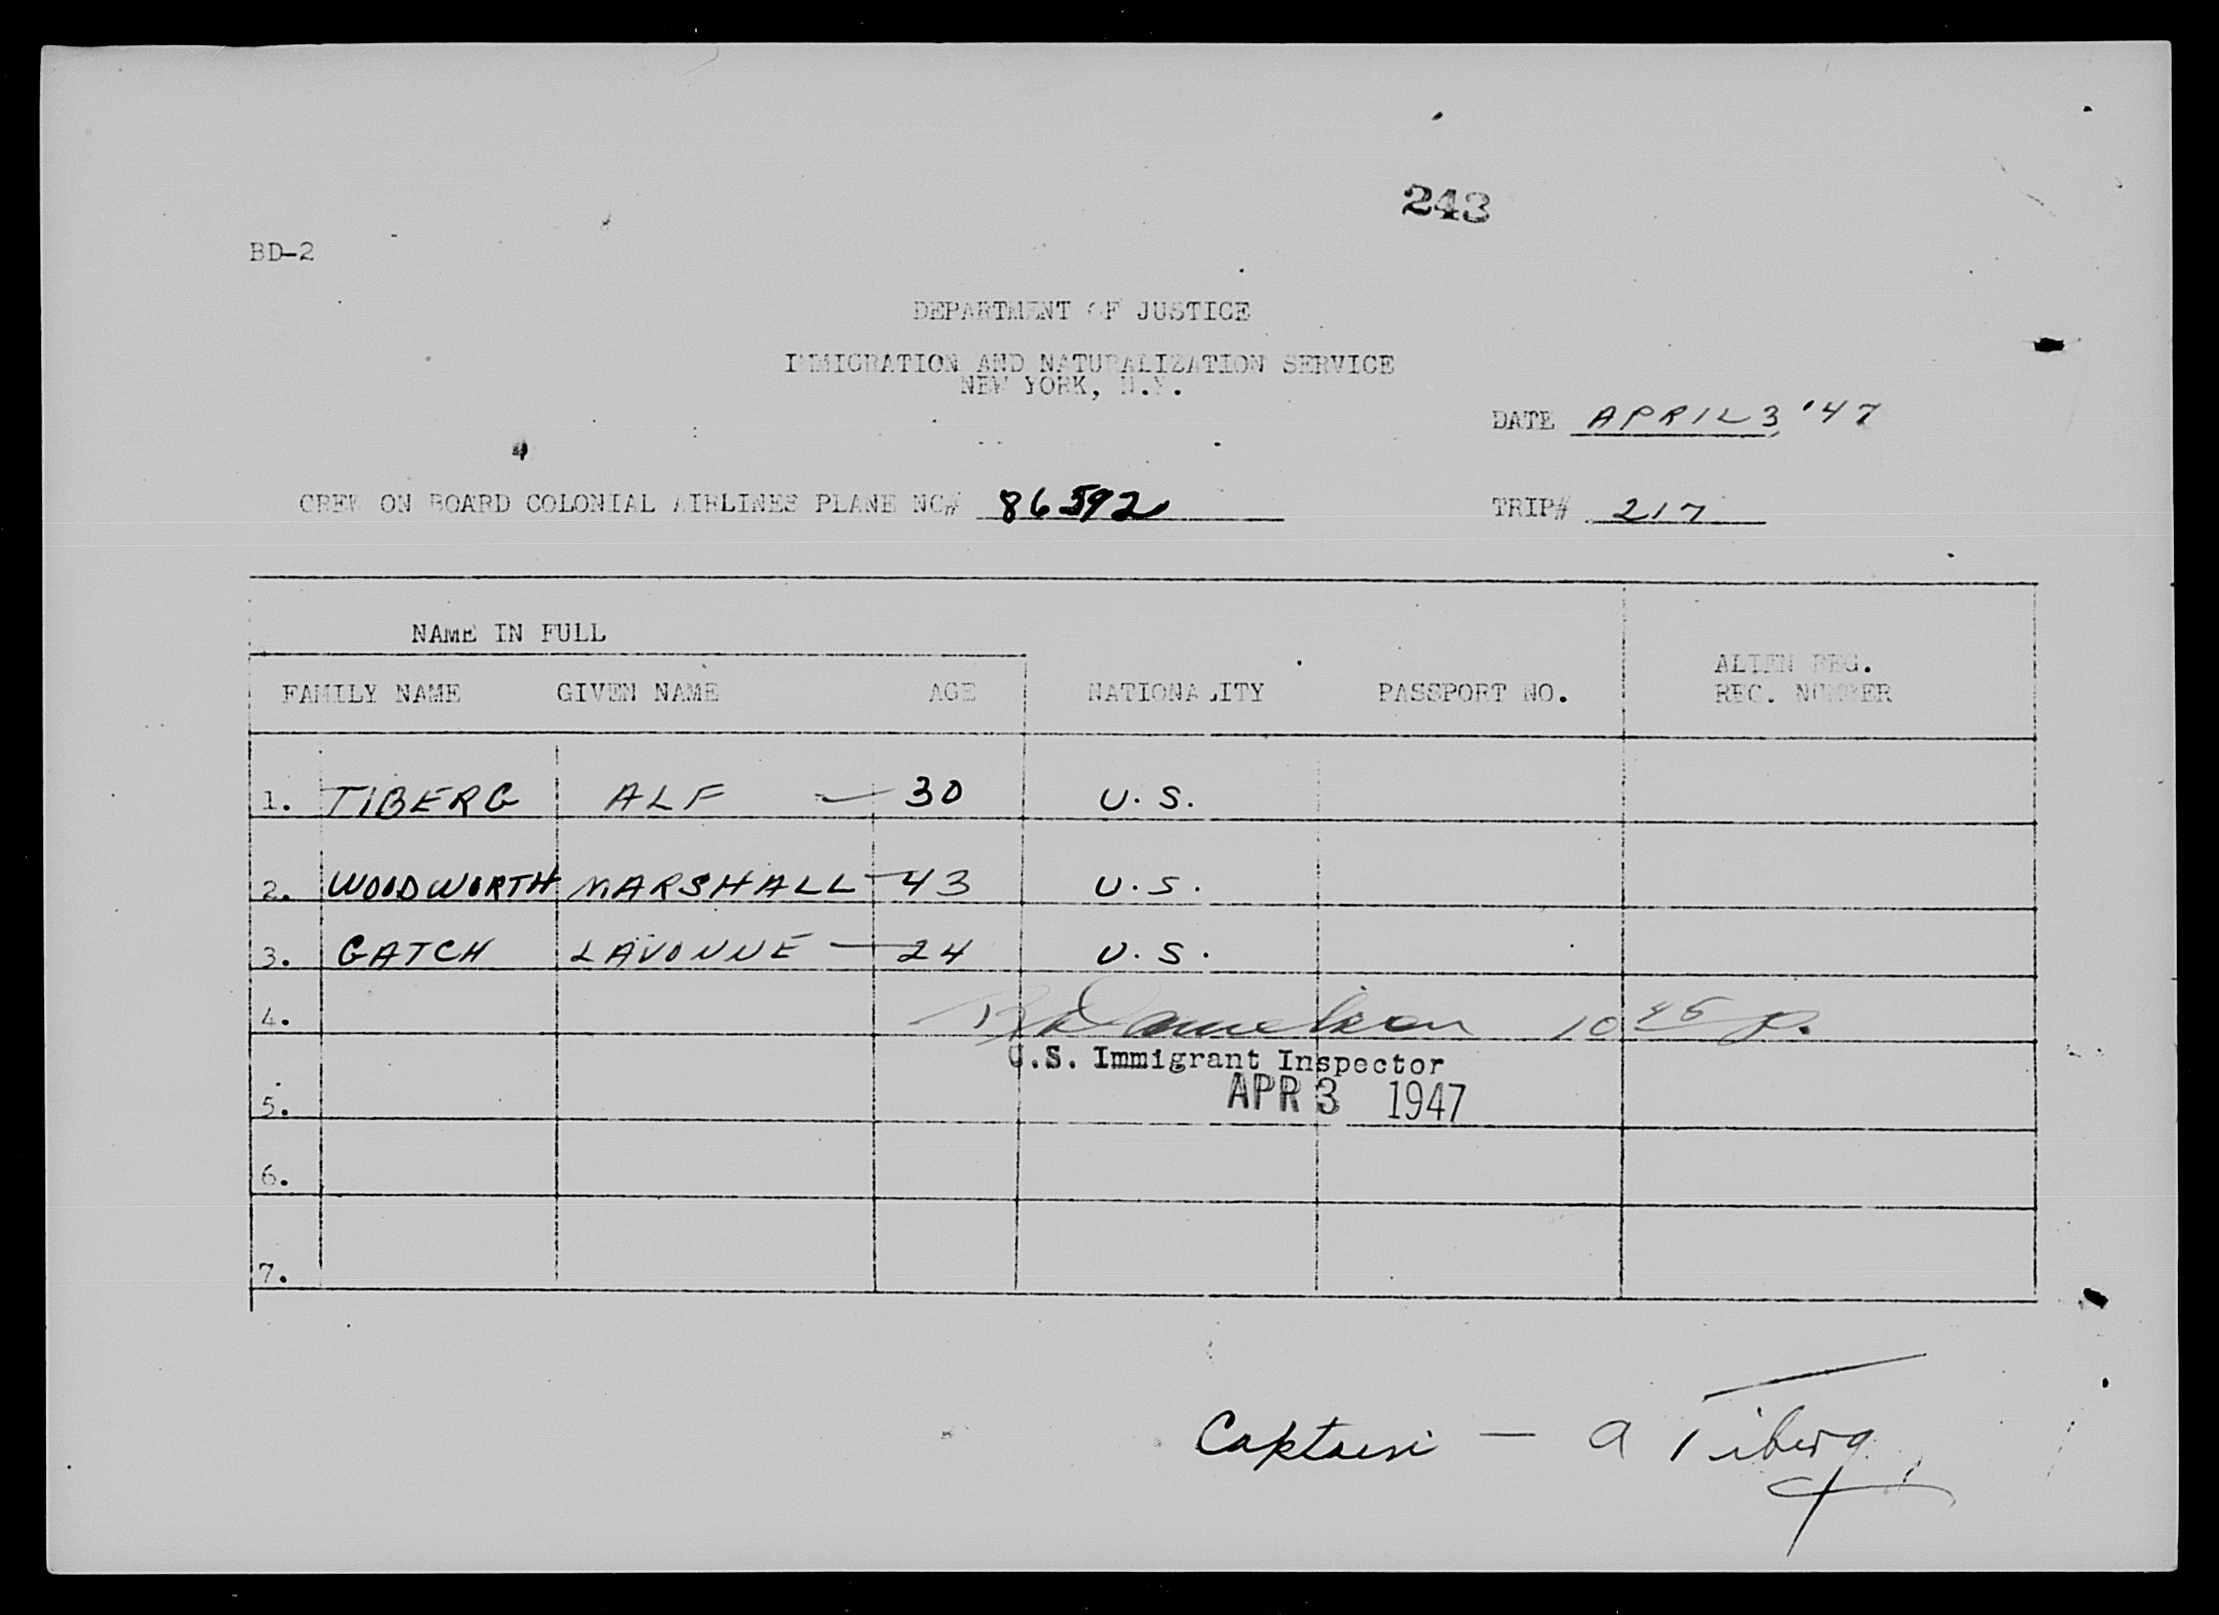 243
BD-2
DEPARTMENT OF JUSTICE
IMMIGRATION AND NATURALIZATION SERVICE
NEW YORK, N.Y.
DATE APRIL 3, '47
CREW ON BOARD COLONIAL AIRLINES PLANE NC# 86592
TRIP# 217
NAME IN FULL
FAMILY NAME GIVEN NAME AGE NATIONALITY PASSPORT NO. ALIEN REG. REC. NUMBER
1. TIBERG ALF — 30 U.S.
2. WOODWORTH MARSHALL — 43 U.S.
3. GATCH LAVONNE — 24 U.S.
4. 10 45 p.
U.S. Immigrant Inspector
APR 3 1947
5.
6.
7.
Captain — A Tiberg